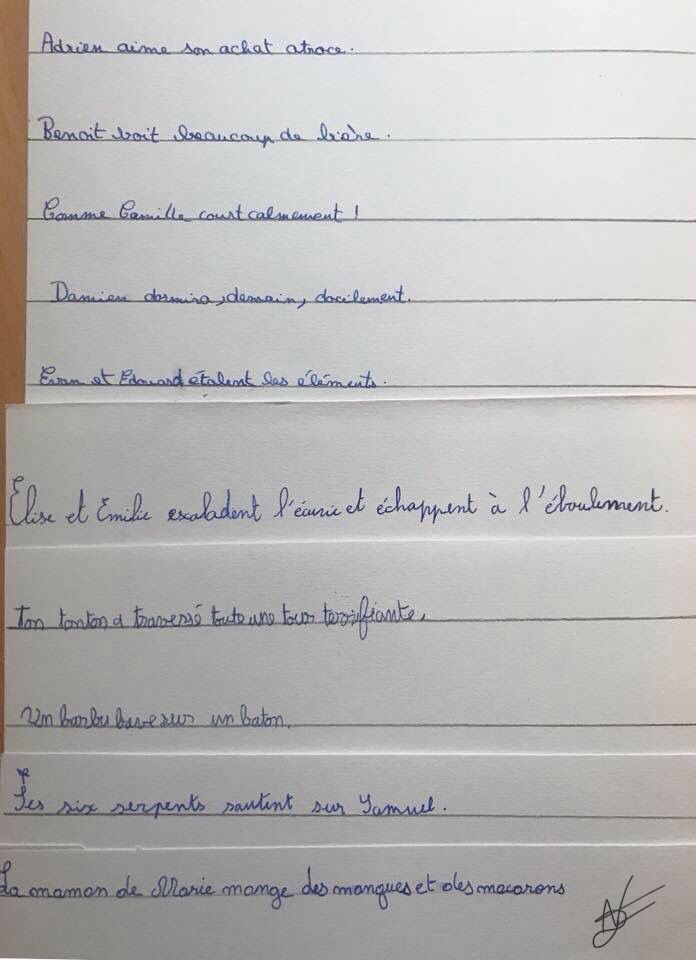 Adrien aime son achat atroce.
Benoit boit beaucoup de bière.
Comme Camille court calmement !
Damien dormira, demain, docilement.
Evan et Edouard étalent les éléments.
Élise et Emilie escaladent l'écurie et échappent à l'éboulement.
Ton tonton a traversé toute une tour terrifiante.
Un barbu bave sur un baton.
Ses six serpents sautent sur Samuel.
La maman de Marie mange des mangues et des macarons